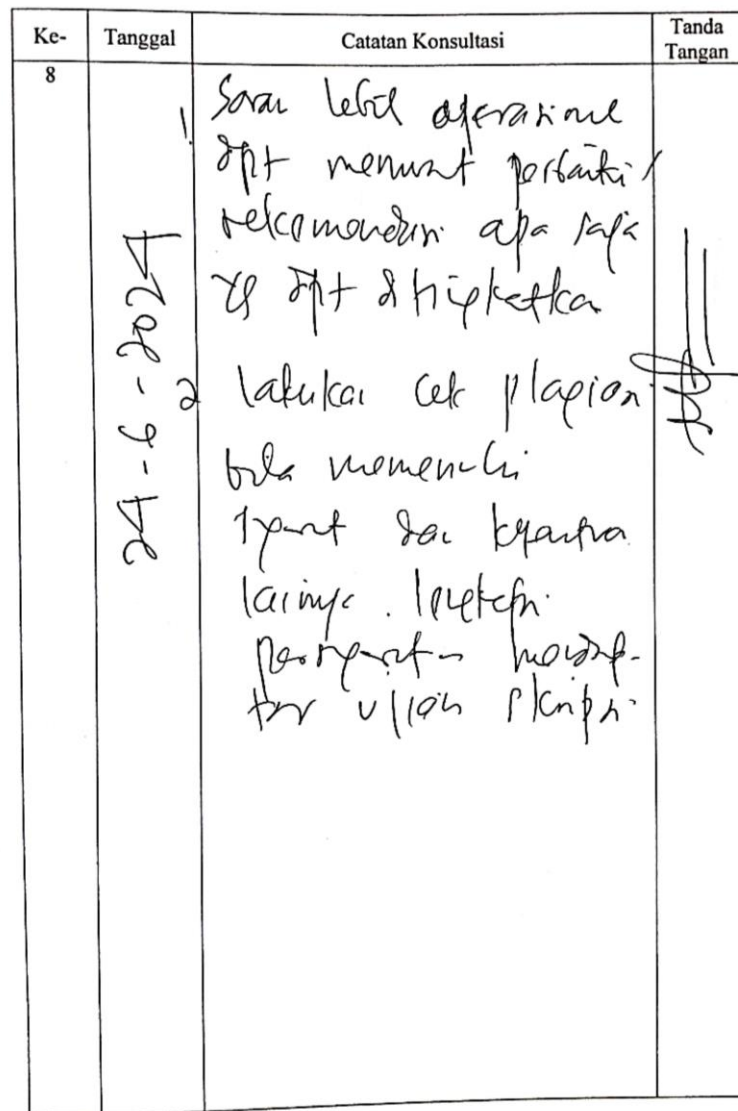 Ke- Tanggal Catatan Konsultasi Tanda Tangan
8
24-6-2024
1 Saran lebih operasional
dpt memuat perbaiki /
rekomendasi apa saja
yg dpt ditingkatkan
2 lakukan cek plagiasi
bila memenuhi
syarat dan
lainnya. lengkapi
persyaratan mendaf-
tar ujian skripsi.